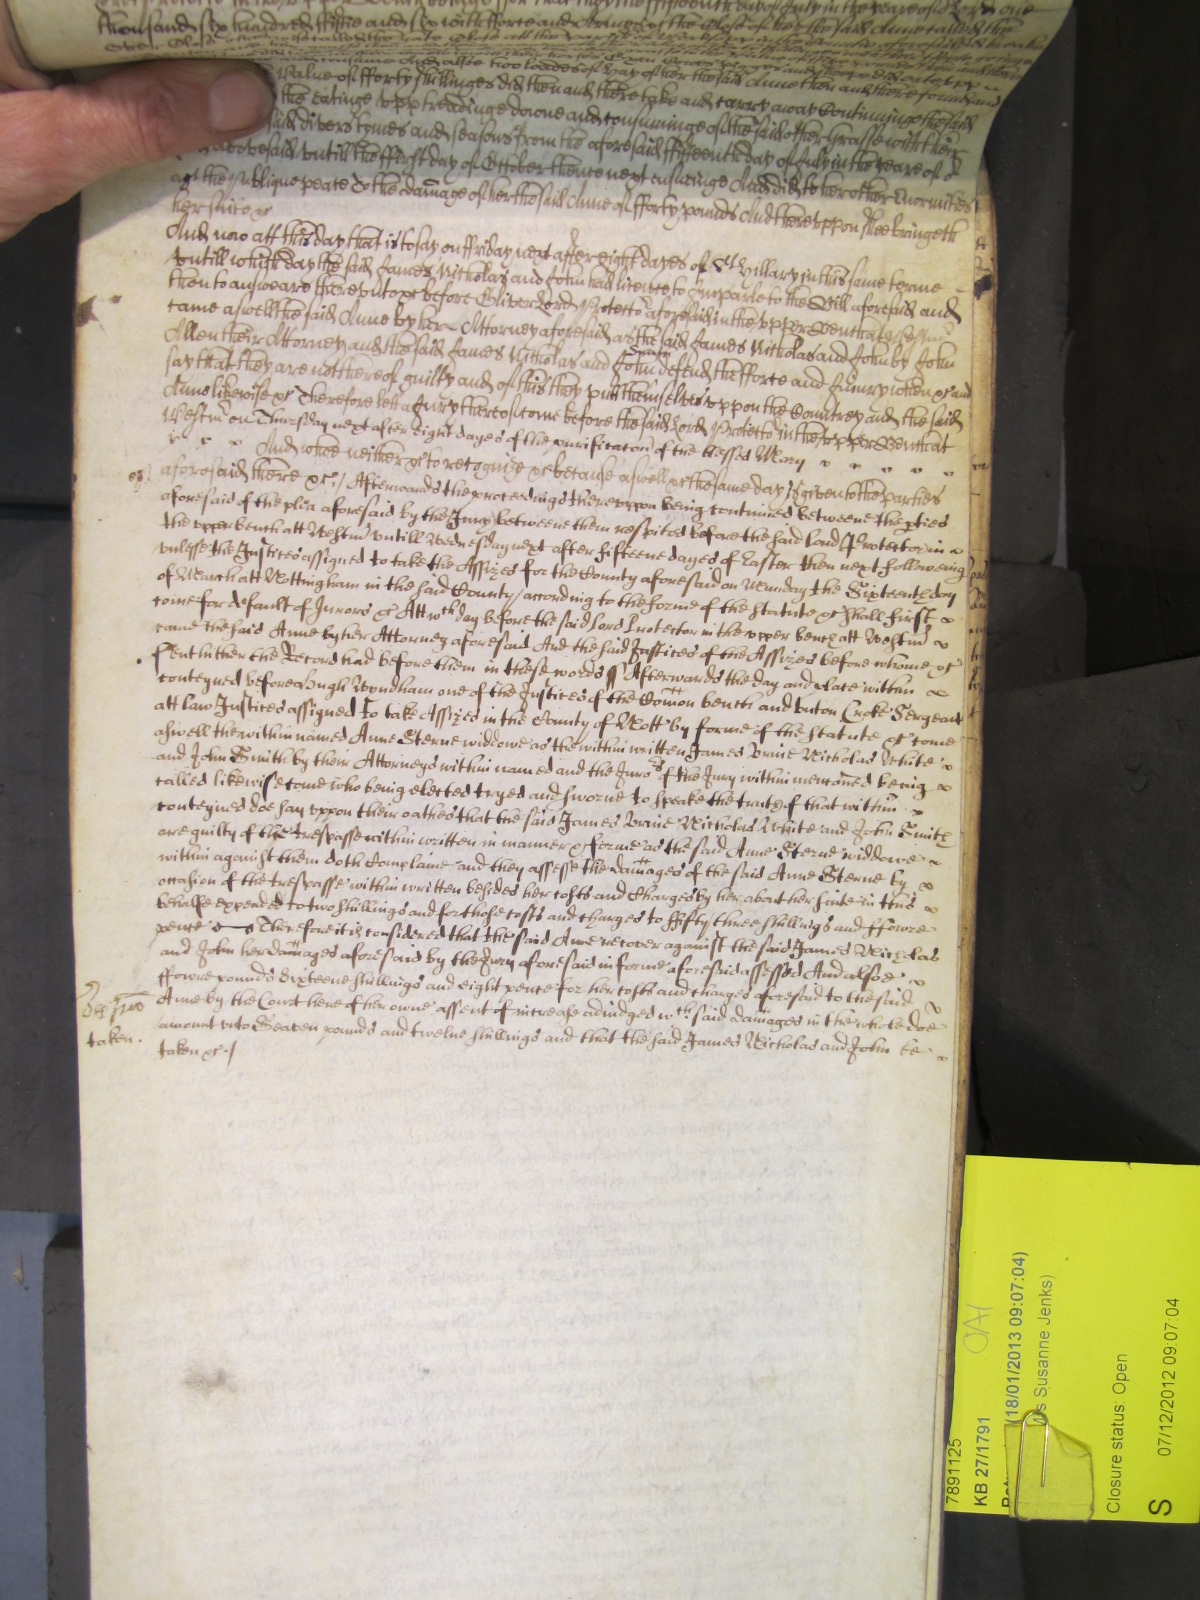 thousand six hundred fiftie and six with force and Armes &c the Close of her the said Anne
value of fforty shillinges did then and there take and carry away Continuinge the said
the eatinge upp treadinge downe and consuminge of the said other Grasse with their
said divers tymes and seasons from the aforesaid fifteenth day of July in the yeare of o
abovesaid untill the first day of October thence next ensueinge And did to her other Enormities
agt the Publique peace & to the damage of her the said Anne of fforty pounds And thereuppon Shee bringeth
her suite &c
And now att this day that is to say on ffriday next after eight dayes of St Hillary in this same terme
untill which day the said James Nicholas and John had licence to Imparle to the Bill aforesaid and
then to answeare thereunto &c before Oliver Lord Protector aforesaid in the upper Bench att Westmr
came aswell the said Anne by her Attorney aforesaid as the said James Nicholas and John by John
Allen their Attorney and the said James Nicholas and John Smith defend the fforce and Iniury when &c and
say that they are not thereof guilty and of this they put themselves uppon the Countrey and the said
Anne likewise &c Therefore lett a Jury thereof come before the said Lord Protector in the upper Bench att
Westmr on Thursday next after eight dayes of the purificaton of the blessed Mary
And whoe neither &c to recognize &c because aswell &c the same day is given to the parties
aforesaid there &c / Afterwards the procedings thereuppon being continued betweene the pties
aforesaid of the plea aforesaid by the Jury betweene them respited before the said Lord Protector in
the upper bench att Westmr untill Wednesday next after fifteene dayes of Easter then next following
unlesse the Justices assigned to take the Assizes for the County aforesaid on Munday the Sixteenth day
of March att Nottingham in the said County according to the forme of the Statute &c shall first
come for default of Jurors &c Att wch day before the said Lord Protector in the upper bench att Westmr
came the said Anne by her Attorney aforesaid And the said Justices of the Assizes before whome &c
sent hither the Record had before them in these words ss Afterwards the day and place within
conteyned before Hugh Wyndham one of the Justices of the Comon bench and Unton Croke Sergeant
att law Justices assigned to take Assizes in the County of Nott by forme of the Statute &c come
aswell the within named Anne Sterne widdowe as the within written James Nicholas White
and John Smith by their Attorneys within named and the Jurors of the Jury within menconed being
called likewise come who being elected tryed and sworne to speake the truth of that within
conteyned doe say uppon their oathes that the said James Nicholas White and John Smith
are guilty of the trespasse within written in manner & forme as the said Anne Sterne widdowe
within against them doth Complaine and they assesse the damages of the said Anne Sterne by
occasion of the trespasse within written besides her costs and charges by her about her suite in this
behalfe expended to two shillings and for those costs and charges to ffifty three shillings and ffowre
pence Therefore it is considered that the said Anne recover against the said James Nicholas
and John her damages aforesaid by the Jury aforesaid in forme aforesaid assessed And alsoe
ffowre pounds Sixteene shillings and eight pence for her costs and charges aforesaid to the said
Anne by the Court here of her owne assent of increase adiudged wch said damages in the whole doe
amount unto Seaven pounds and twelve shillings and that the said James Nicholas and John be
taken.
taken &c /
7891125
KB 27/1791
(18/01/2013 09:07:04)
s Susanne Jenks)
Closure status: Open
S
07/12/2012 09:07:04